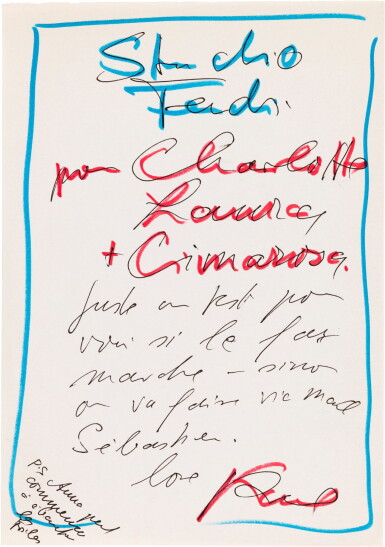 Studio
Fendi.
pour Charlotte
Laura
+ Cimarosa.
Juste un test pour
voir si le fax
marche – sinon
on va faire via mail
Sébastien.
love Karl
P.S Anna peut
commencer
à ébaucher
les toiles